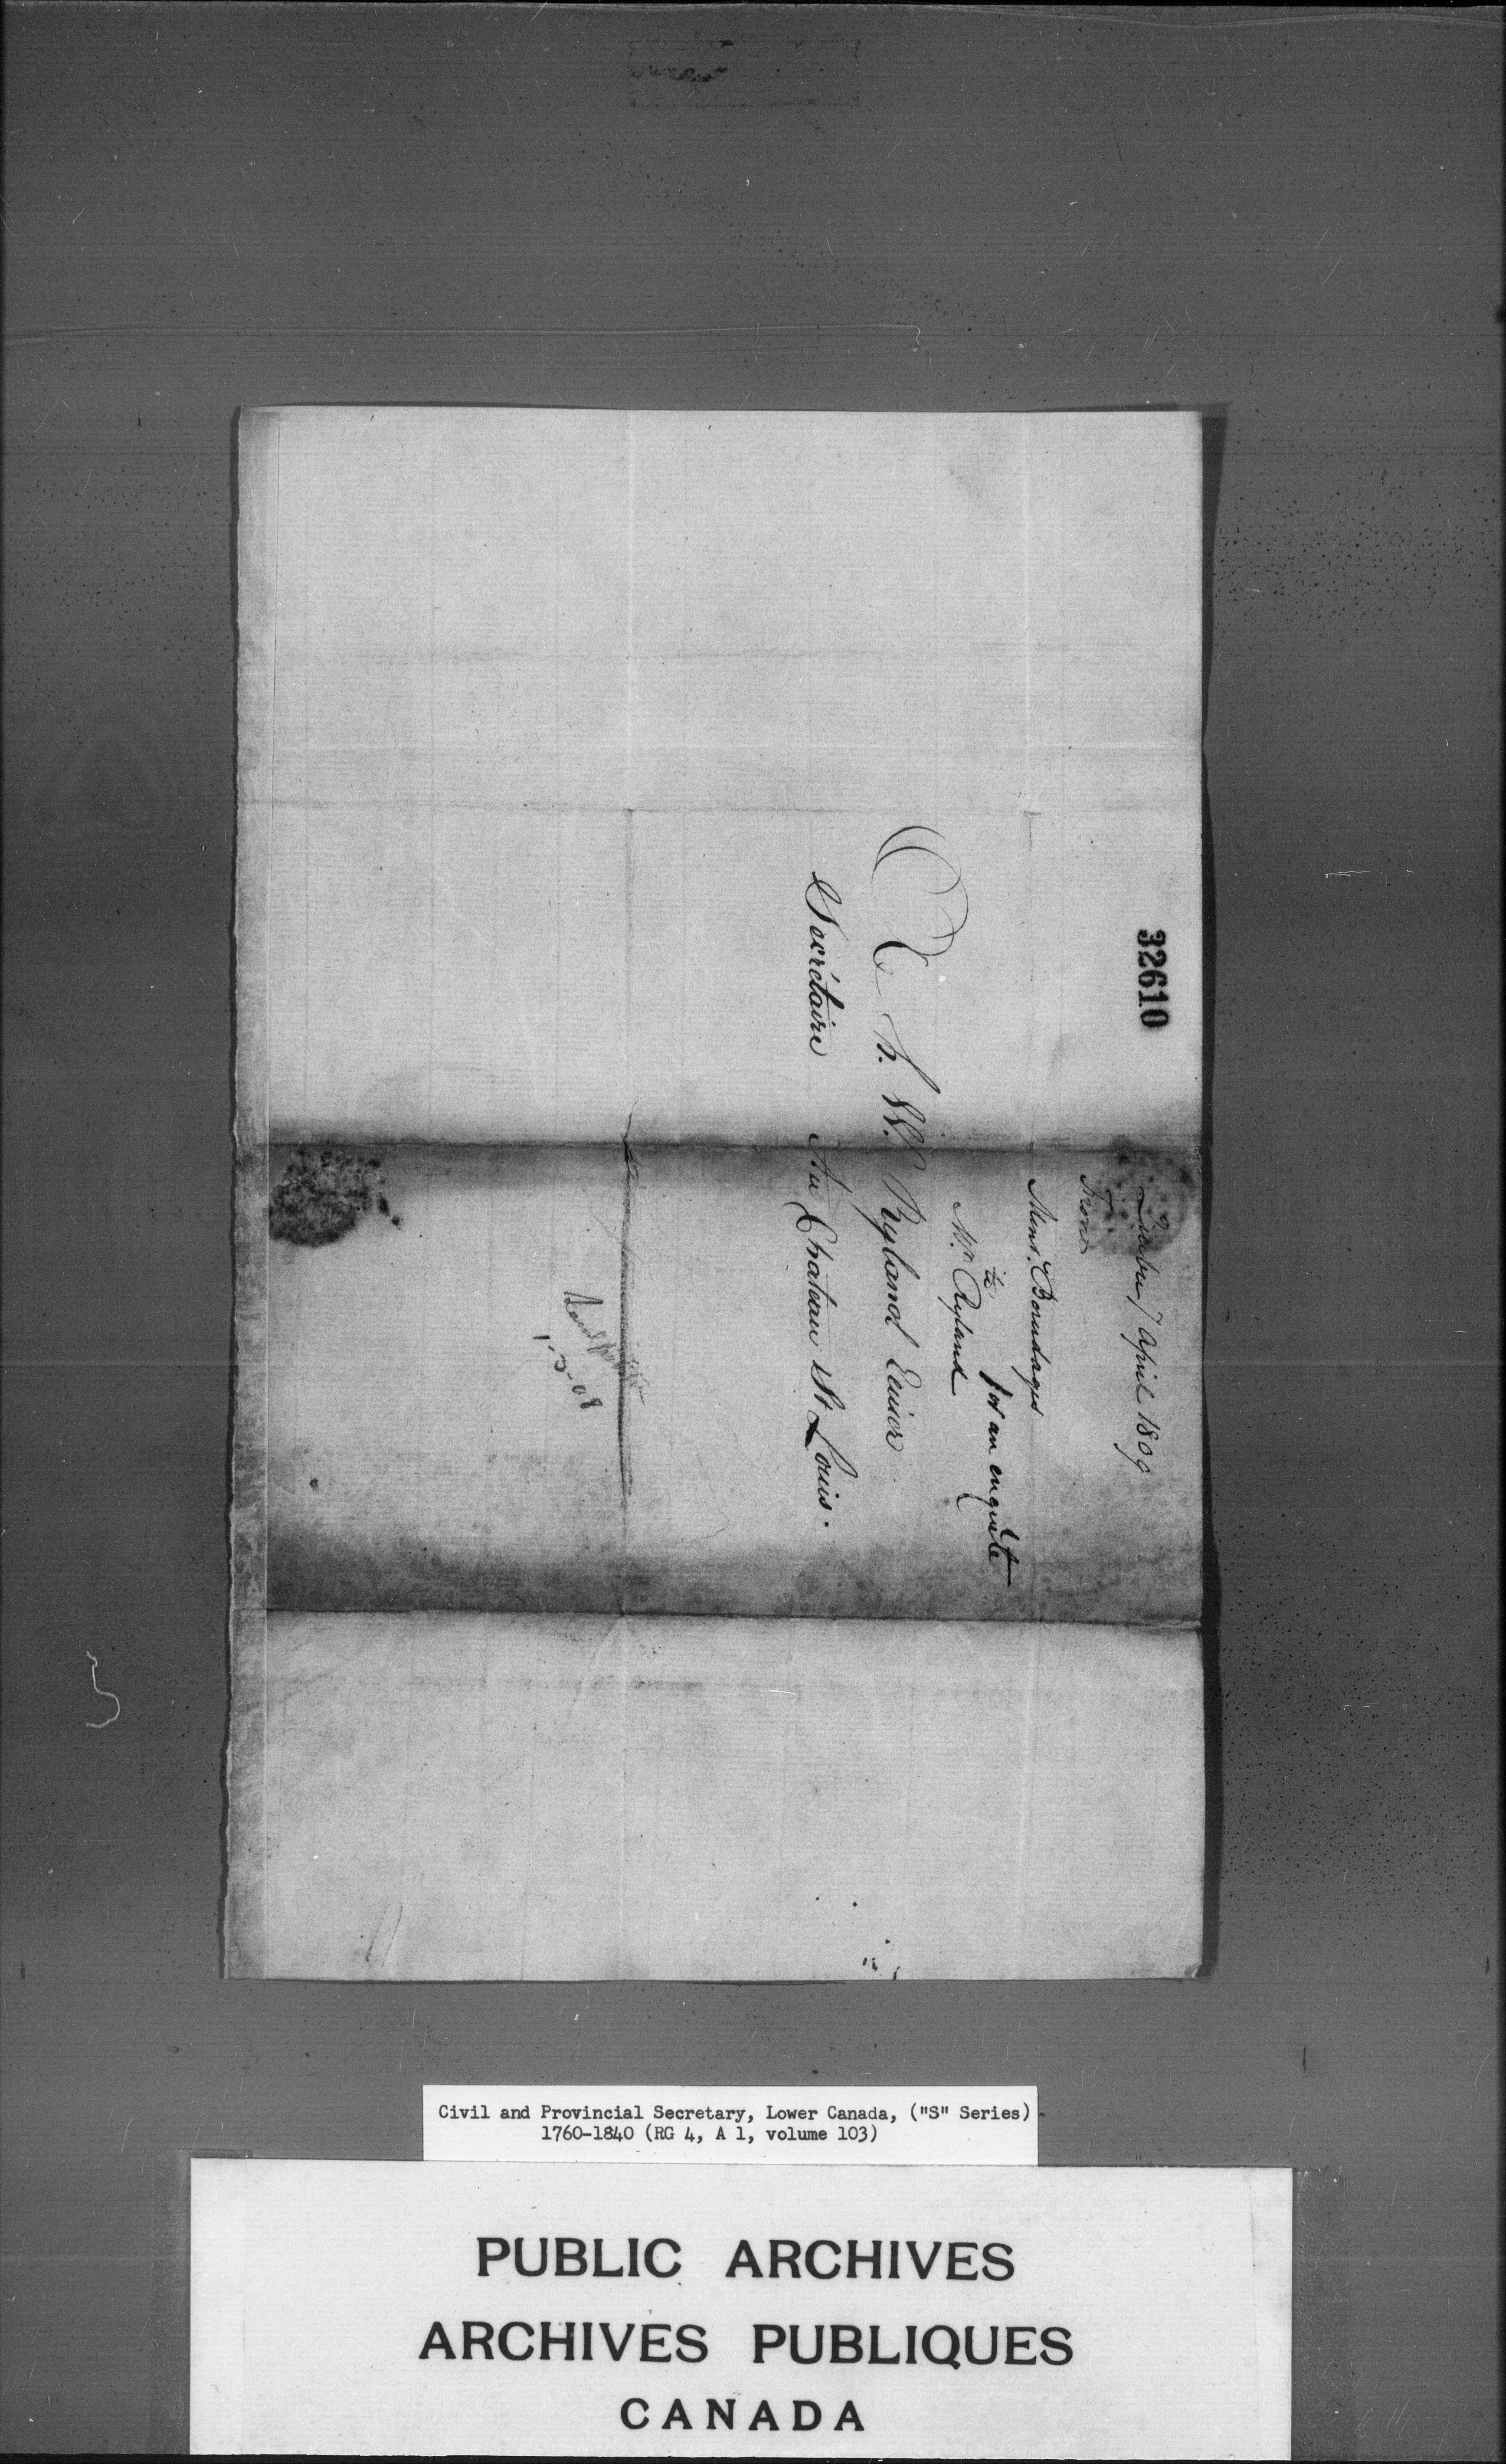 32610
Quebec 7 April 1809
From
Mons. Bourdages
to
Mr. Ryland
for an enquête
A h. W. Ryland Ecuier
Secrétaire Au Chateau St Louis.
Civil and Provincial Secretary, Lower Canada, ("S" Series)
1760-1840 (RG 4, A 1, volume 103)
PUBLIC ARCHIVES
ARCHIVES PUBLIQUES
CANADA